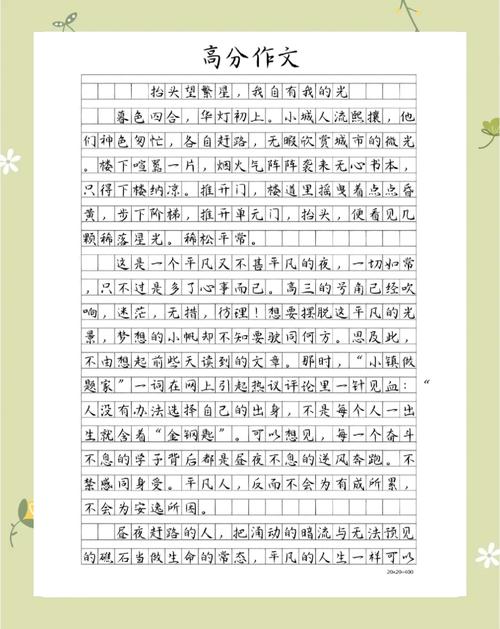 高分作文
抬头望繁星，我自有我的光
暮色四合，华灯初上。小城人流熙攘，他
们神色匆忙，各自赶路，无暇欣赏城市的微光
。楼下喧嚣一片，烟火气阵阵袭来无心书本，
只得下楼纳凉。推开门，楼道里摇曳着点点昏
黄，步下阶梯，推开单元门，抬头，便看见几
颗稀落星光。稀松平常。
这是一个平凡又不甚平凡的夜，一切如常
，只不过是多了心事而已。高三的号角已经吹
响，迷茫，无措，彷徨！想要摆脱这平凡的光
景，梦想的小帆却不知要驶同何方。思及此，
不由想起前些天读到的文章。那时，“小镇做
题家”一词在网上引起热议评论里一针见血：“
人没有办法选择自己的出身，不是每个人一出
生就含着“金钥匙”。可以想见，每一个奋斗
不息的学子背后都是昼夜不息的逆风奔跑。不
禁感同身受。平凡人，反而不会为有成所累，
不会为安逸所困。
昼夜赶路的人，把涌动的暗流与无法预见
的礁石当做生命的常态，平凡的人生一样可以
20×20=400